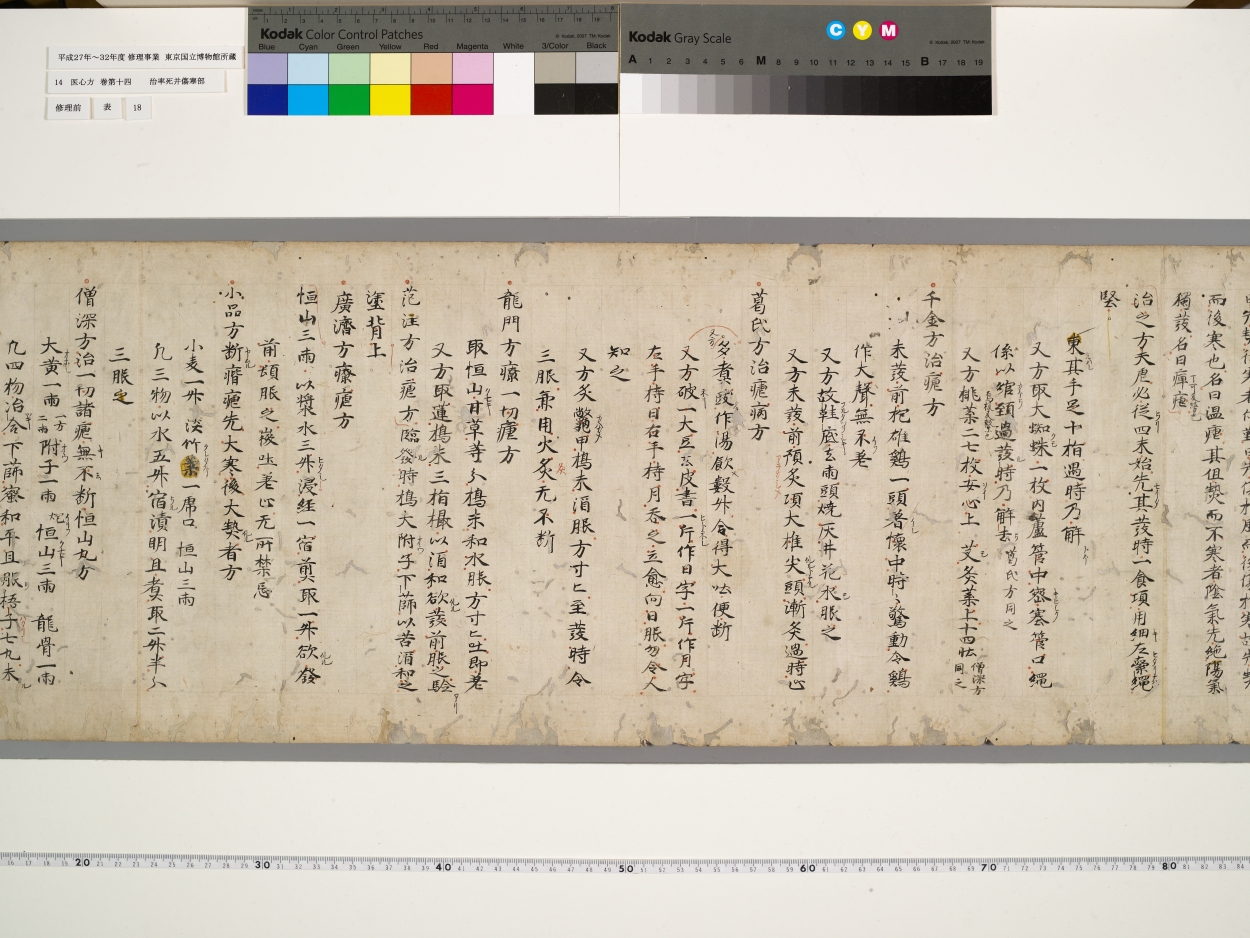 平成27年～32年度 修理事業 東京国立博物館所蔵
14 医心方 巻第十四 治卒死并傷寒部
修理前 表 18
Kodak Color Control Patches
Blue Cyan Green Yellow Red Magenta White 3/Color Black
Kodak Gray Scale
C Y M
A 1 2 3 4 5 6 M 8 9 10 11 12 13 14 15 B 17 18 19
而後寒也名曰温瘧其但熱而不寒者陰氣先絶陽氣
獨發名曰瘅瘧
治之方夫瘧必從四末始先其發時一食項用細左索繩
堅
束其手足十指過時乃解
又方取大蜘蛛一枚内蘆管中密塞管口繩
係以綰頚過發時乃解去 葛氏方同之
又方桃葉二七枚安心上艾灸葉上十四壮 僧深方同之
千金方治瘧方
未發前抱雄鷄一頭著懐中時々驚動令鷄
作大聲無不差
又方故鞋底去兩頭燒灰井花水服之
又方未發前預灸項大椎尖頭漸灸過時止
葛氏方治瘧病方
多煮豉作湯飲數升令得大吐便断
又方破一大豆去皮書一片作日字一片作月字
左手持日右手持月吞之立愈向日服勿令人
知之
又方炙鱉甲擣末酒服方寸匕至發時令
三服兼用火炙无不断
龍門方療一切瘧方
取恒山甘草等分擣末和水服方寸匕吐即差
又方取蓮擣末三指撮以酒和欲發前服之験
范汪方治瘧方臨發時擣大附子下篩以苦酒和之
塗背上
廣濟方療瘧方
恒山三兩以漿水三升浸経一宿煎取一升欲發
前頓服之後吐差止无所禁忌
小品方断瘧先大寒後大熱者方
小麦一升 淡竹葉一席口 恒山三兩
凡三物以水五升宿漬明旦煮取二升半分
三服之
僧深方治一切諸瘧無不断恒山丸方
大黄一兩 一方二兩 附子一兩 炮 恒山三兩 龍骨一兩
凡四物冶合下篩蜜和平旦服梧子七丸未